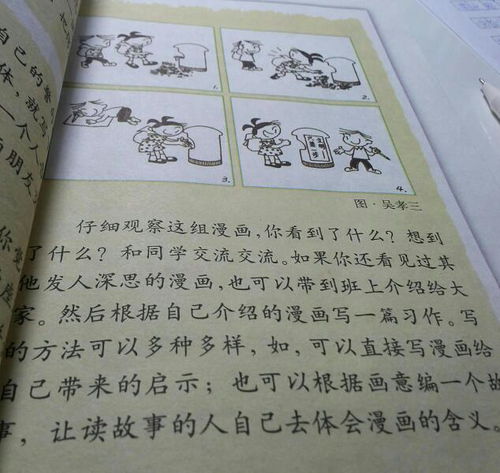 1.
2.
3.
4.
图·吴孝三
仔细观察这组漫画,你看到了什么?想到
了什么?和同学交流交流。如果你还看见过其
他发人深思的漫画,也可以带到班上介绍给大
家。然后根据自己介绍的漫画写一篇习作。写
的方法可以多种多样,如,可以直接写漫画给
自己带来的启示;也可以根据画意编一个故
事,让读故事的人自己去体会漫画的含义。
自己的
体,就
一个人
朋友
你
座